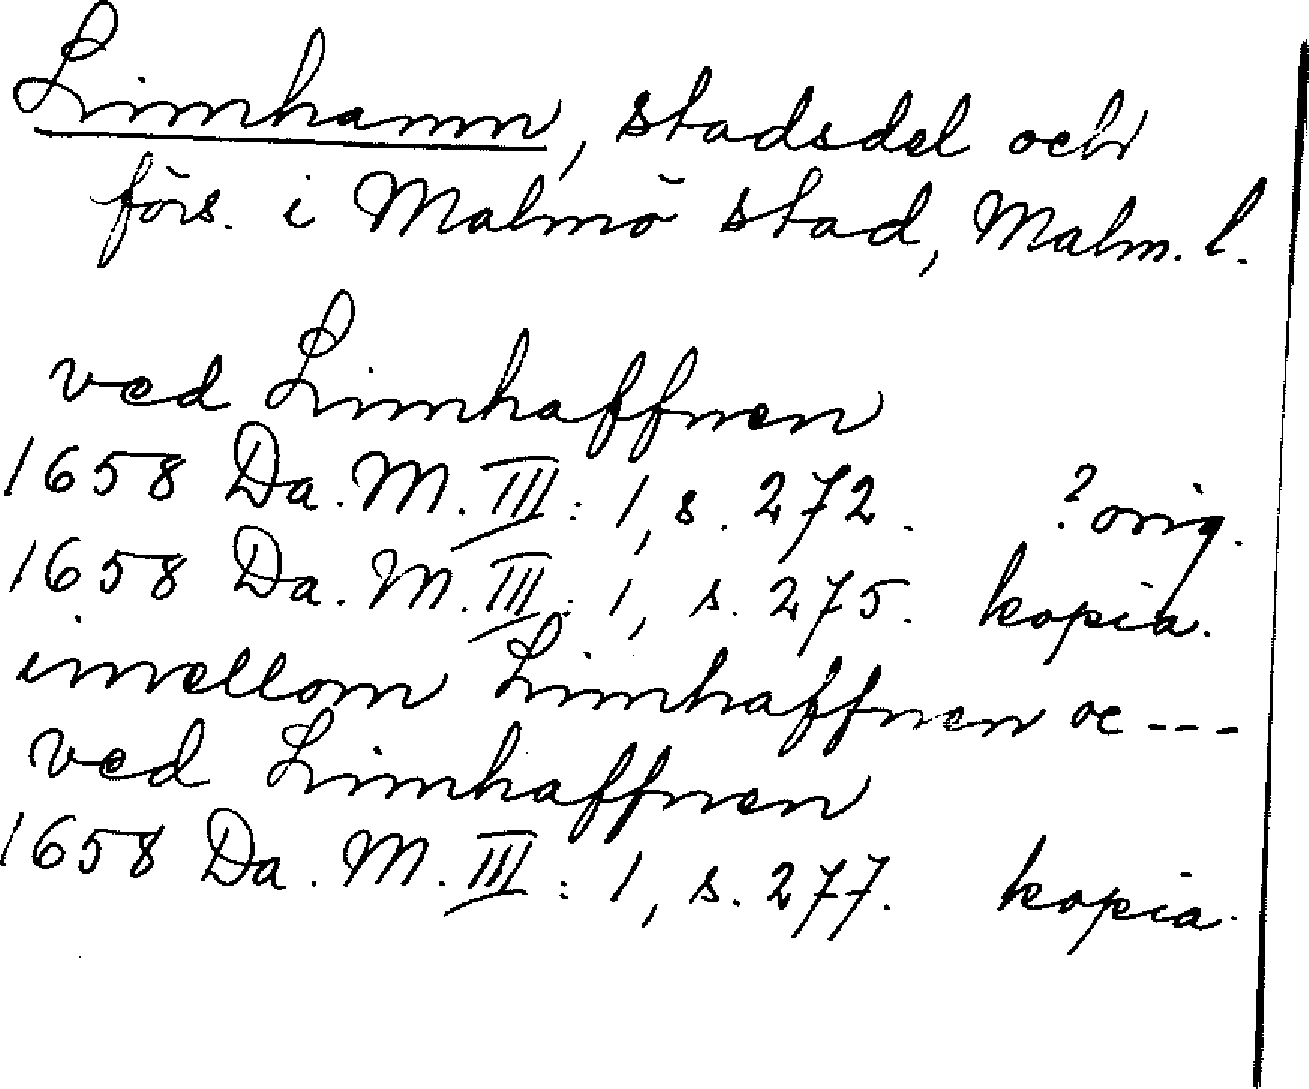 Limhamn, stadsdel och
förs. i Malmö stad, Malm. l.
ved Limhaffnen
1658 Da. M. III: 1, s. 272. ? orig.
1658 Da. M. III: 1, s. 275. kopia.
imellom Limhaffnen oc ---
ved Limhaffnen
1658 Da. M. III: 1, s. 277. kopia.